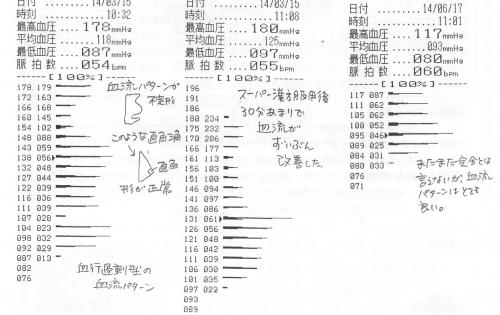 日付 '14/03/15
時刻 10:32
最高血圧 ....178mmHg
平均血圧 .....118mmHg
最低血圧 ....087mmHg
脈拍数 ....054bpm
[100%]
178 179
172 163
154 102
148 080
143 059
138 056
132 048
127 044
116 036
111 039
107 020
104 023
098 032
092 029
087 013
082
076
血流パターンが
不整形
このような直角三角
直角
形が正常
血行過動型の
血流パターン
日付 '14/03/15
時刻 11:08
最高血圧 ....180mmHg
平均血圧 .....125mmHg
最低血圧 ....097mmHg
脈拍数 ....055bpm
[100%]
196
191
186
180 234
175 228
170 206
166 177
161 113
156 103
151 082
146 094
141 086
136 067
131 061
126 051
121 048
116 042
111 046
106 031
101 035
097 023
093
089
スーパー漢方服用後
30分あまりで
血流が
ずいぶん
改善した。
日付 '14/06/17
時刻 11:01
最高血圧 ....117mmHg
平均血圧 .....093mmHg
最低血圧 ....080mmHg
脈拍数 ....060bpm
[100%]
117 087
111 062
105 062
100 052
095 046
090 054
084 051
080 033
076
071
まだまだ完全とは
言えないが、血流
パターンはとても
良い。